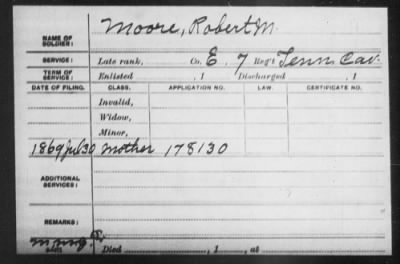 NAME OF SOLDIER: Moore, Robert M.
SERVICE: Late rank, Co. E. 7 Reg't Tenn Cav.
TERM OF SERVICE: Enlisted , 1 Discharged , 1
DATE OF FILING. CLASS. APPLICATION NO. LAW. CERTIFICATE NO.
Invalid,
Widow,
Minor,
1869 Jul 30 Mother 178130
ADDITIONAL SERVICES:
REMARKS:
Died , 1 , at